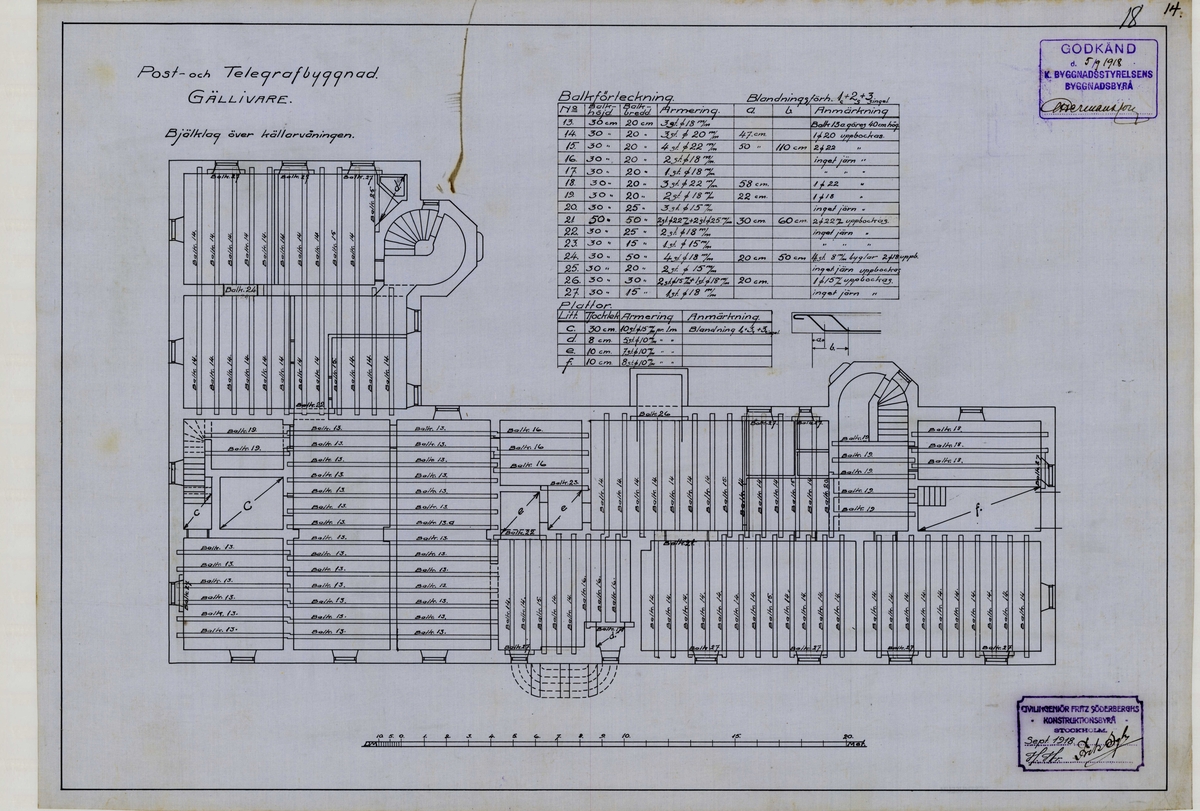 18 14.
GODKÄND
d. 5/9 1918
K. BYGGNADSSTYRELSENS
BYGGNADSBYRÅ
Post- och Telegrafbyggnad.
GÄLLIVARE.
Bjälklag över källarvåningen.
Balkförteckning. Blandningsförh. 1c+2s+3singel
No Balk-höjd Balk-bredd Armering. a. b. Anmärkning
13. 30 cm 20 cm 3 st ϕ 18 m/m Balk 13a göres 40 cm hög.
14. 30 " 20 " 3 st. ϕ 20 m/m 47 cm 1 ϕ 20 uppbockas.
15 30 " 20 " 4 st ϕ 22 m/m 50 " 110 cm 2 ϕ 22 "
16. 30 " 20 " 2 st ϕ 18 m/m inget järn "
17. 30 " 20 " 1 st. ϕ 18 m/m " " "
18. 30 " 20 " 3 st ϕ 22 m/m 58 cm. 1 ϕ 22 "
19. 30 " 20 " 2 st ϕ 18 m/m 22 cm. 1 ϕ 18 "
20. 30 " 25 " 3 st ϕ 15 m/m inget järn "
21 50 " 50 " 2 st ϕ 22 m/m + 2 st ϕ 25 m/m 30 cm 60 cm 2 ϕ 22 m/m uppbockas.
22. 30 " 25 " 2 st ϕ 18 m/m inget järn "
23. 30 " 15 " 1 st. ϕ 15 m/m " " "
24. 30 " 50 " 4 st ϕ 18 m/m 20 cm 50 cm 4 st. 8 m/m byglar 2 ϕ 18 uppb.
25. 30 " 20 " 2 st ϕ 15 m/m inget järn uppbockas
26. 30 " 30 " 2 st ϕ 15 m/m + 1 st ϕ 18 m/m 20 cm. 1 ϕ 15 m/m uppbockas.
27. 30 " 15 " 1 st ϕ 18 m/m inget järn "
Plattor.
Litt. Tjocklek Armering Anmärkning.
c. 30 cm 10 st ϕ 15 m/m pr. lm Blandning 1c+3s+3singel
d 8 cm 5 st ϕ 10 m/m " "
e. 10 cm 7 st ϕ 10 m/m " "
f. 10 cm 8 st ϕ 10 m/m " "
a b.
Balk. 27 Balk. 27 Balk. 27
Balk. 25
Balk. 14. Balk. 14. Balk. 14. Balk. 14. Balk. 14. Balk. 14. Balk. 14. Balk. 14. Balk. 15 Balk. 14.
Balk. 24
Balk. 14. Balk. 14. Balk. 14. Balk. 14. Balk. 14. Balk. 14. Balk. 14. Balk. 14. Balk. 15 Balk. 14. Balk. 14. Balk. 14.
Balk. 22
Balk. 26
Balk. 19 Balk. 13. Balk. 13. Balk. 16. Balk. 18.
Balk. 19. Balk. 13. Balk. 13. Balk. 16 Balk. 19. Balk. 18.
Balk. 13. Balk. 13. Balk. 16 Balk. 19 Balk. 18.
Balk. 13. Balk. 13. Balk. 23 Balk. 19
c C Balk. 13. Balk. 13. e e Balk. 19 f.
Balk. 13. Balk. 13.a Balk. 19
Balk. 25 Balk. 21
Balk. 13. Balk. 13. Balk. 13.
Balk. 13. Balk. 13. Balk. 13.
Balk. 13. Balk. 13. Balk. 13
Balk. 13. Balk. 13. Balk. 13.
Balk. 13. Balk. 13. Balk. 13.
Balk. 13. Balk. 13. Balk. 13.
Balk. 27 Balk. 27 Balk. 27 Balk. 27 Balk. 27
DM 10. 5. 0. 1 2 3 4 5 6 7 8 9 10. 15. 20. Met.
CIVILINGENIÖR FRITZ SÖDERBERGHS
KONSTRUKTIONSBYRÅ
STOCKHOLM.
Sept. 1918.